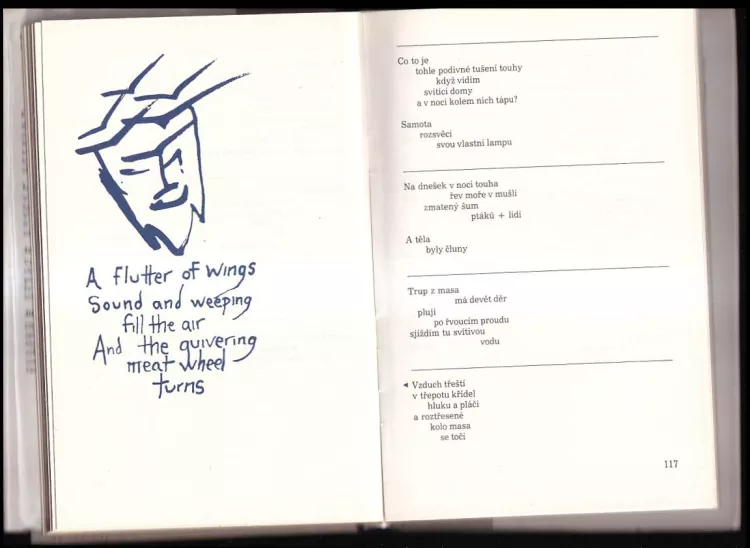 A flutter of wings
Sound and weeping
fill the air
And the quivering
meat wheel
turns
Co to je
tohle podivné tušení touhy
když vidím
svítící domy
a v noci kolem nich tápu?
Samota
rozsvěcí
svou vlastní lampu
Na dnešek v noci touha
řev moře v mušli
zmatený šum
ptáků + lidí
A těla
byly čluny
Trup z masa
má devět děr
pluji
po řvoucím proudu
sjíždím tu svítivou
vodu
◄ Vzduch třeští
v třepotu křídel
hluku a pláči
a roztřesené
kolo masa
se točí
117